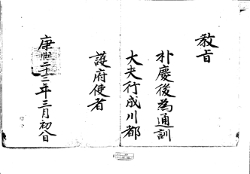 教旨
朴慶後為通訓
大夫行成川都
護府使者
康熙二十三年三月初